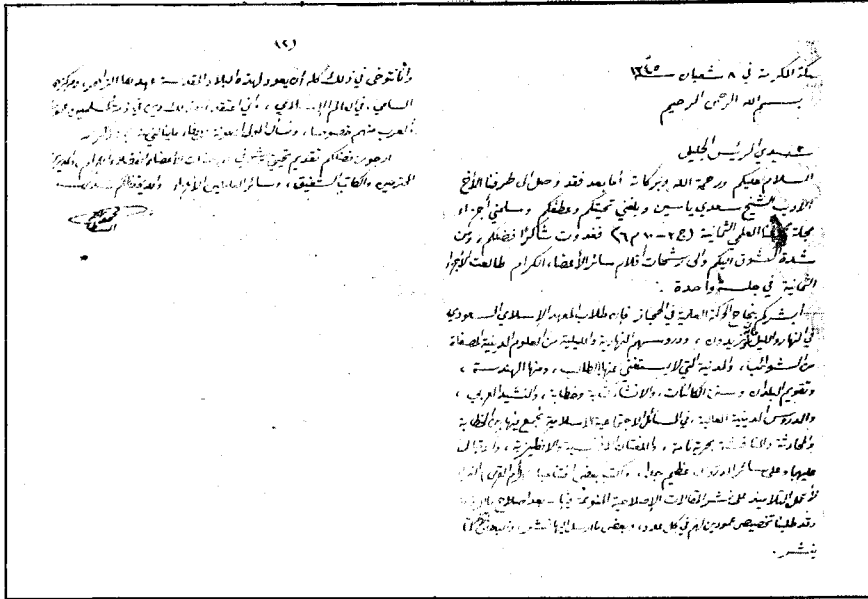 مكة المكرمة في ٨ شعبان ١٣٤٥
بسم الله الرحمن الرحيم
سيدي الرئيس الجليل
السلام عليكم ورحمة الله وبركاته أما بعد فقد وصل الى طرفنا الأخ
الأديب الشيخ سعدي ياسين وبلغني تحيتكم وعطفكم وسلمني أجزاء
مجلة العلمي الثمانية (ج ٣ - ١٠ م ٦) فغدوت شاكرًا فضلكم، ومن
شدة الشوق اليكم والى رشحات أقلام سائر الأعضاء الكرام طالعت الأجزاء
الثمانية في جلسة واحدة .
أبشركم بنجاح الحركة العلمية في الحجاز فإن طلاب المعهد الإسلامي السعودي
في النهار والليل يزيدون ، ودروسهم النهارية والليلية من العلوم الدينية المصفاة
من الشوائب، والمدنية التي لا يستغني عنها الطالب ، ومنها الهندسة ،
وتقويم البلدان وسنن الكائنات، والانشاء كتابة وخطابة، والنشيد العربي ،
والدروس الدينية العالية، في المسائل الاجتماعية الاسلامية نجمع فيها بين الخطابة
والمحادثة والمناقشة بحرية تامة ، واللغتان الافرنسية والانكليزية ،
عليها وعلى سائر الدروس عظيم جدا . بعض أم القرى
لأحمل التلاميذ على نشر المقالات الإصلاحية المنوعة فيها - بعد إصلاح
وقد طلبنا تخصيص عمودين لهم في كل عدد ، بعض
ينشر .
(٢)
وأنا نتوخى في ذلك كله أن يعود لهذه البلاد المقدسة عهدها الزاهر، ومركزها
السامي، في العالم الإسلامي ، أعتقد ذلك دين في ذمة المسلمين
العرب منهم خصوصا ، ونسأل المولى
ارجو من فضلكم تقديم تحيتي حضرات الأعضاء
المحترمين والكاتب الشفيق ، وسائر العاملين الأبرار